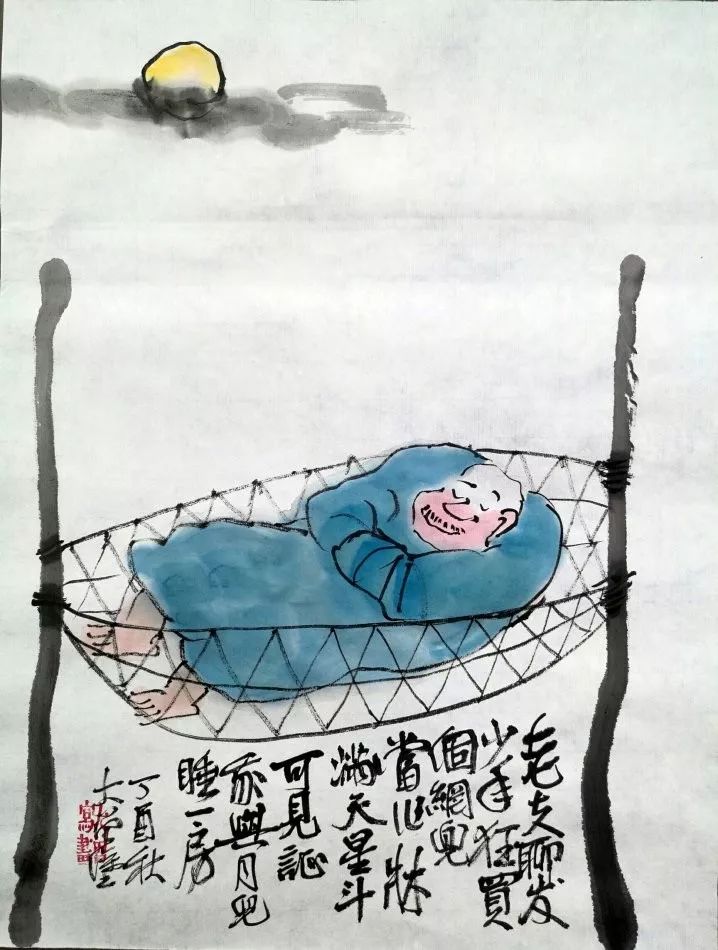 老夫聊发
少年狂買
個網兜
當心牀
滿天星斗
可見証
我與月兒
睡一房
丁酉秋
大
寫畫